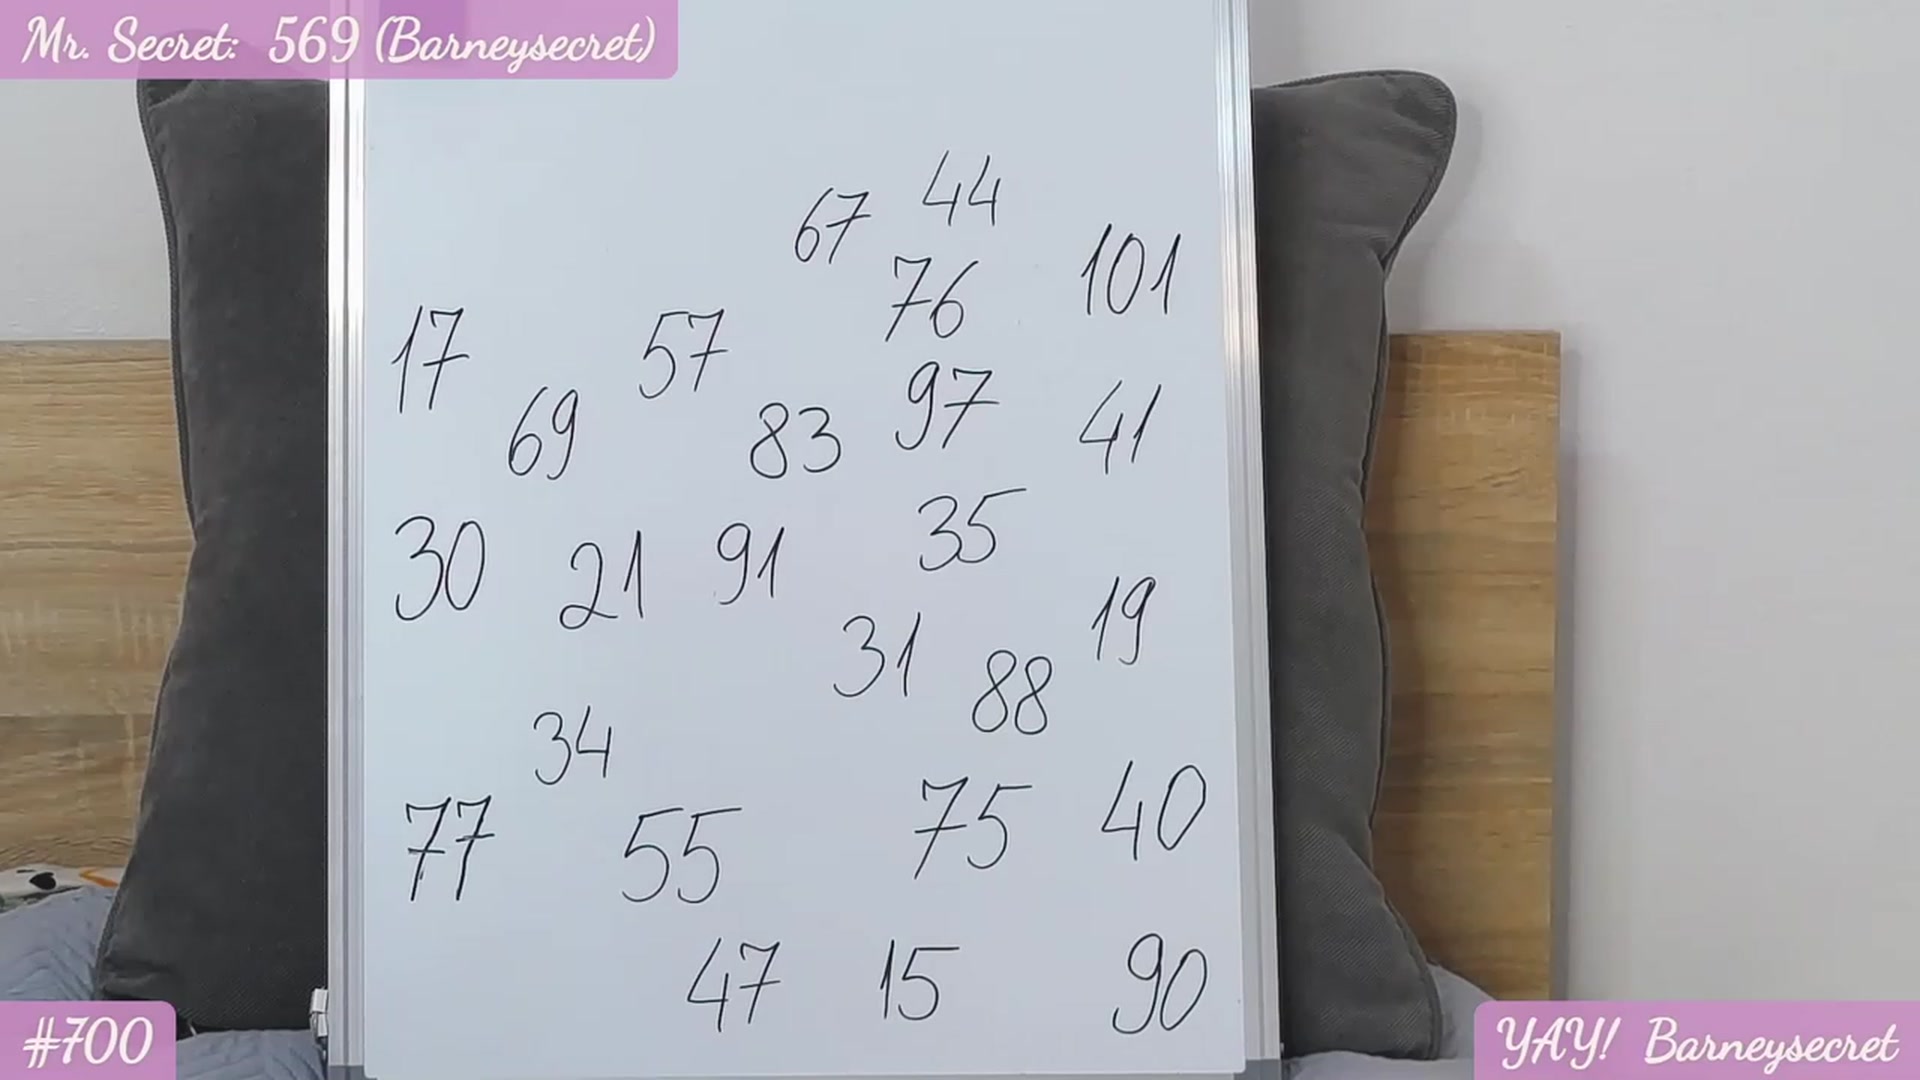 Mr. Secret: 569 (Barneysecret)
67 44
76 101
17 57
69 83 97 41
30 21 91 35
31 88 19
34
77 55 75 40
47 15 90
#700
YAY! Barneysecret